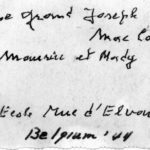 Grand Joseph
Mac
Maurice et Mady
Ecole Mue d'Elvou
Belgium '44